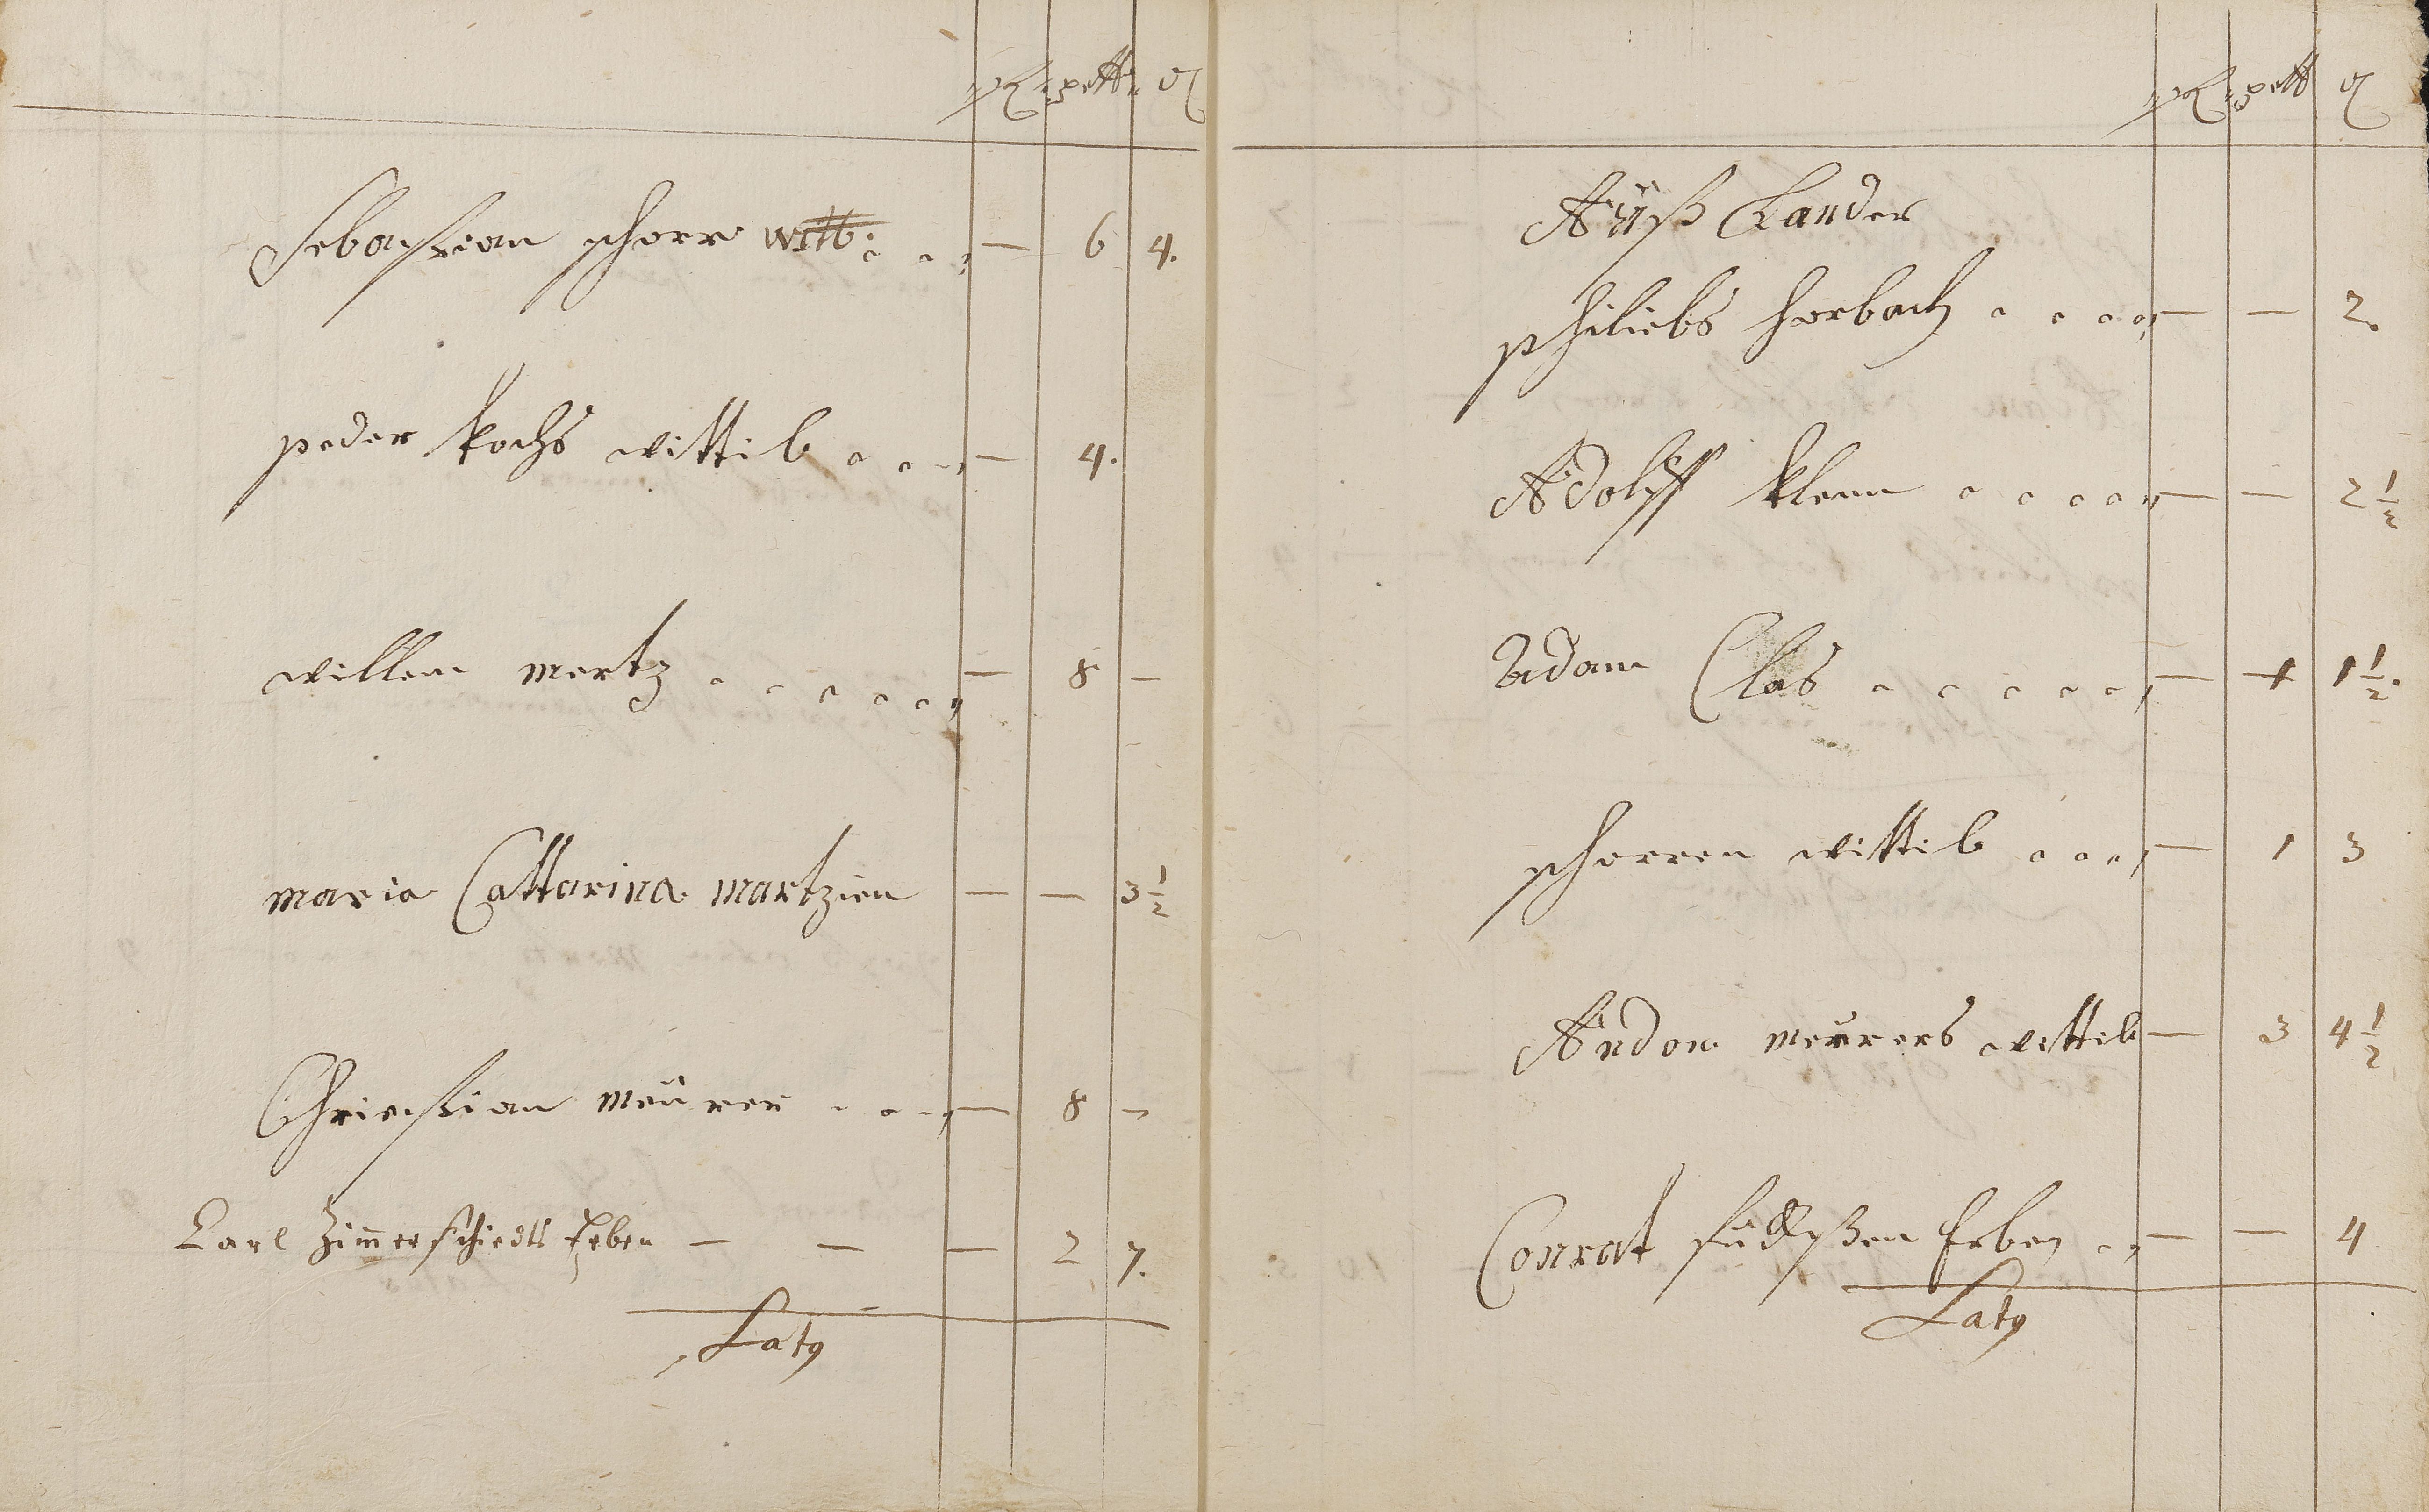 pett
Sebastian schorr witb. — 6 4.
peder Kochs wittib — 4.
willem mertz — 8 —
maria Cattarina martzien — — 3 1/2
Christian meürer — 8 —
Carl Zimerschiedts Erben — — — 2 7.
Laty
pett
Aüß Lander
philiebs horbach — — 2.
Adolff klem — — 2 1/2
Adam Clas — 1 1 1/2.
schorren wittib — 1 3
Andon meurers wittib — 3 4 1/2
Conrat Erben — — 4
Laty